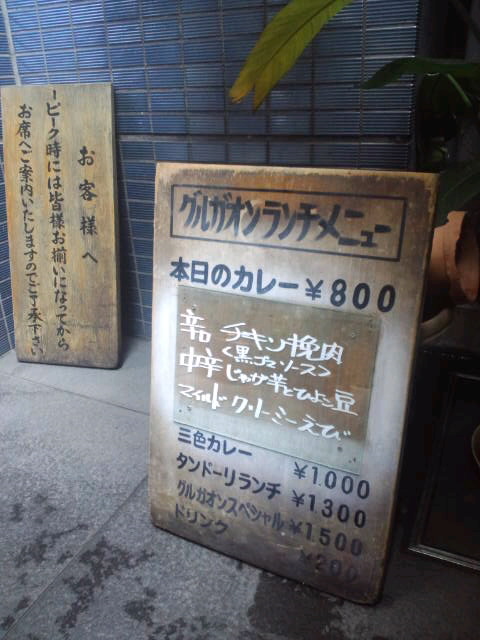 お客様へ
ーピーク時には皆様お揃いになってから
お席へご案内いたしますのでご了承下さい
グルガオンランチメニュー
本日のカレー ¥800
辛口 チキン挽肉
<黒ゴマソース>
中辛 じゃが芋とひよこ豆
マイルド クリーミーえび
三色カレー ¥1.000
タンドーリランチ ¥1300
グルガオンスペシャル ¥1.500
ドリンク ¥200